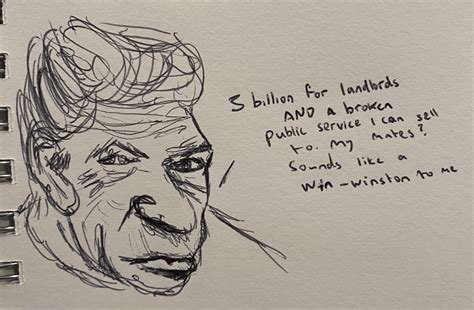 3 billion for landlords
AND a broken
public service I can sell
to my mates?
Sounds like a
Win-Winston to me